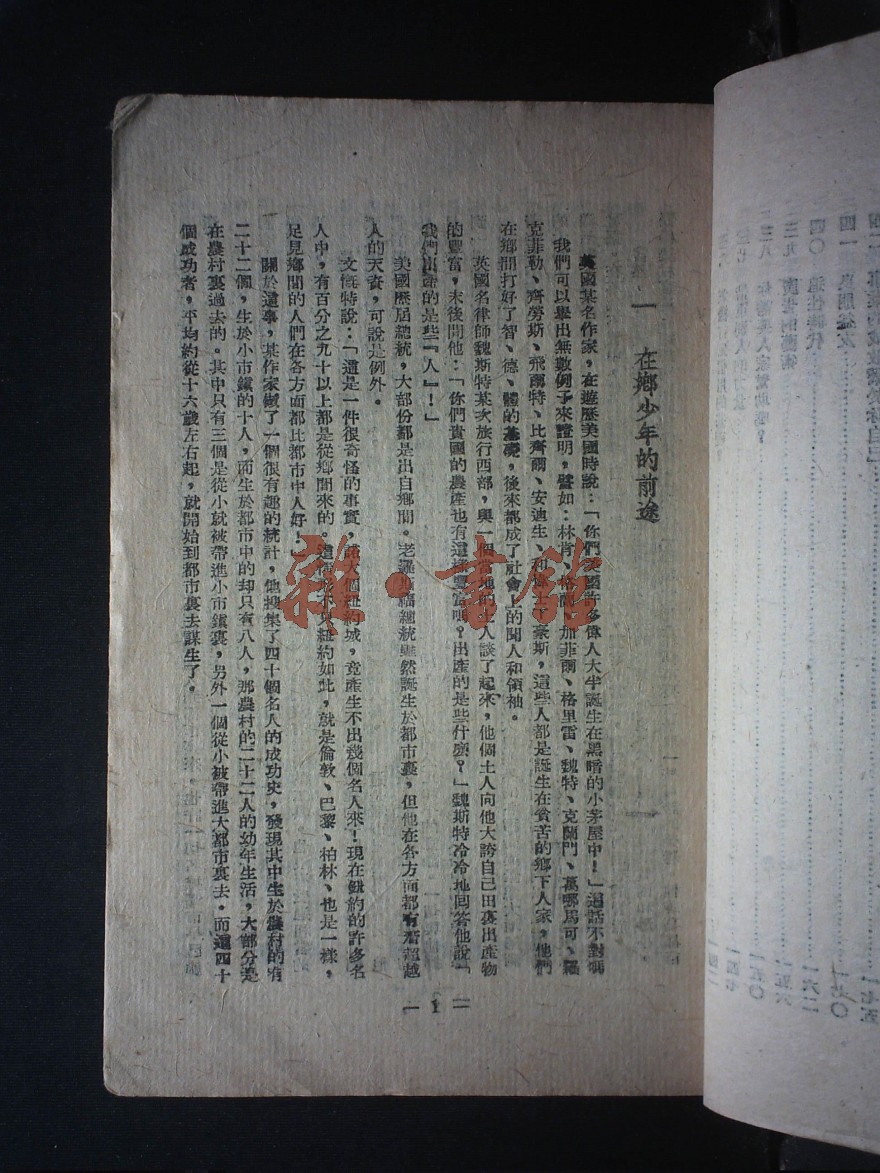 一　在鄉少年的前途
英國某名作家，在遊歷美國時說：「你們美國許多偉人大半誕生在黑暗的小茅屋中！」這話不對嗎
我們可以舉出無數例子來證明，譬如：林肯、格蘭、加菲爾、格里雷、魏特、克蘭門、萬哪馬可、羅
克菲勒、齊勞斯、飛爾特、比齊爾、安迪生、和偉士丁豪斯，這些人都是誕生在貧苦的鄉下人家，他們
在鄉間打好了智、德、體的基礎，後來都成了社會上的聞人和領袖。
英國名律師魏斯特某次旅行西部，與一個當地的土人談了起來，他個土人向他大誇自己田裏出產物
的豐富，末後問他：「你們貴國的農產也有這樣豐富嗎？出產的是些什麼？」魏斯特冷冷地回答他說「
我們出產的是些『人』！」
美國歷屆總統，大部份都是出自鄉間。老羅斯福總統雖然誕生於都市裏，但他在各方面都有着超越
人的天資，可說是例外。
文慨特說：「這是一件很奇怪的事實，諾大個紐約城，竟產生不出幾個名人來！現在紐約的許多名
人中，有百分之九十以上都是從鄉間來的。這情形不只紐約如此，就是倫敦、巴黎、柏林、也是一樣，
足見鄉間的人們在各方面都比都市中人好！」
關於這事，某作家做了一個很有趣的統計，他搜集了四十個名人的成功史，發現其中生於農村的有
二十二個，生於小市鎮的十人，而生於都市中的却只有八人，那農村的二十二人的幼年生活，大部分是
在農村裏過去的。其中只有三個是從小就被帶進小市鎮裏，另外一個從小被帶進大都市裏去。而這四十
個成功者，平均約從十六歲左右起，就開始到都市裏去謀生了。
一 1 一
雜·書館